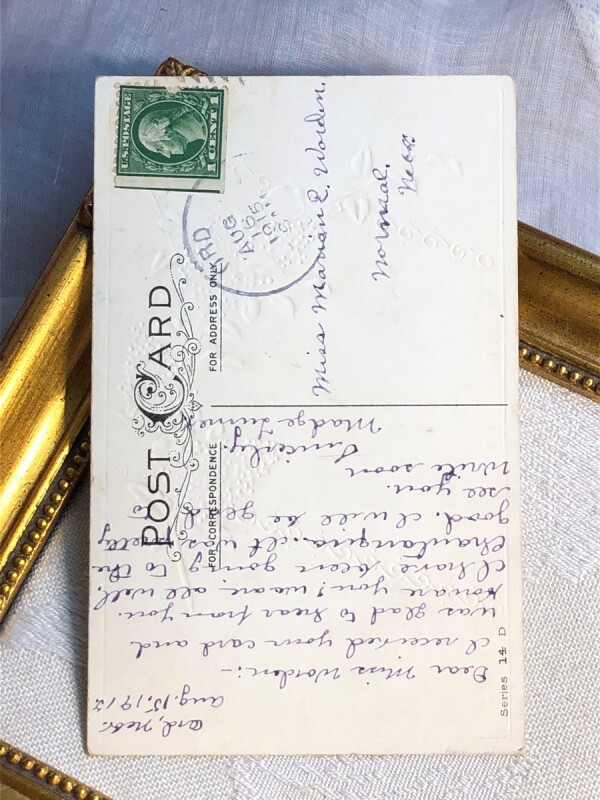 POST CARD
FOR CORRESPONDENCE
FOR ADDRESS ONLY
U.S. POSTAGE
1 CENT 1
RD
AUG
Miss Marian E. Worden.
Normal.
Nebr
Ord, Nebr.
Aug. 15, 1912
Dear Miss Worden:-
I received your card and
was glad to hear from you.
How are you! we are all well.
I have been going to the
Chautauqua. It was pretty
good. I will be glad to
see you.
Write soon
Sincerely,
Madge Turner
Series 14 D